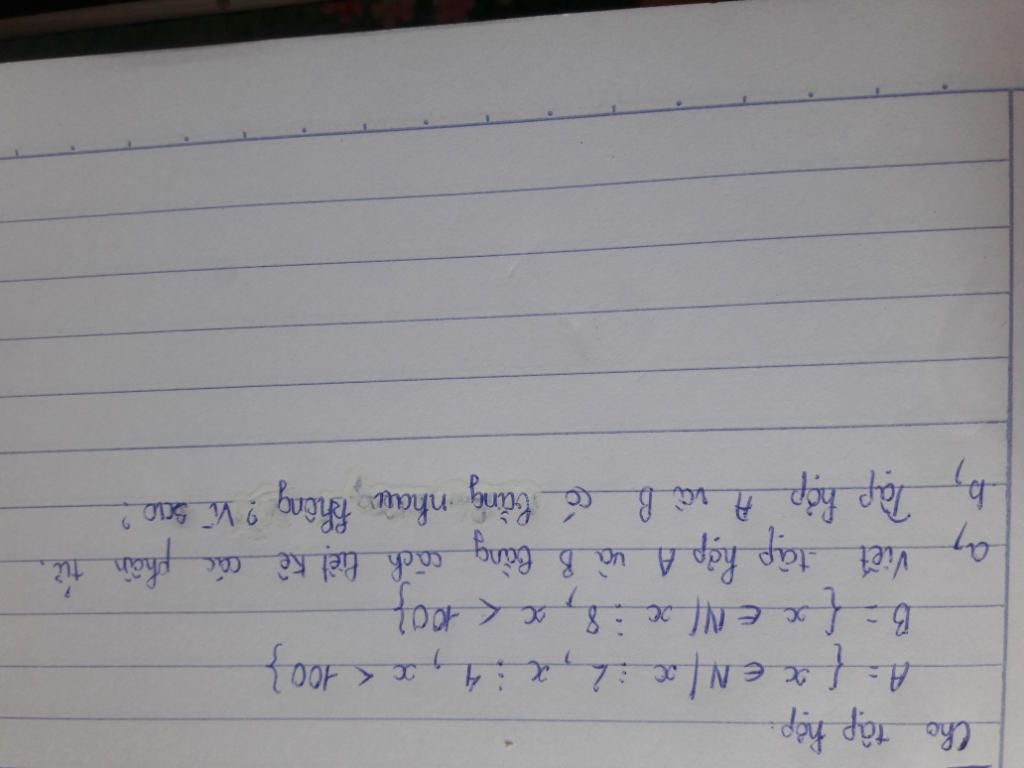 Cho tập hợp:
A = { x ∈ N / x ⋮ 2, x ⋮ 4, x < 100}
B = { x ∈ N / x ⋮ 8, x < 100}
a, Viết tập hợp A và B bằng cách liệt kê các phần tử.
b, Tập hợp A và B có bằng nhau không? Vì sao?